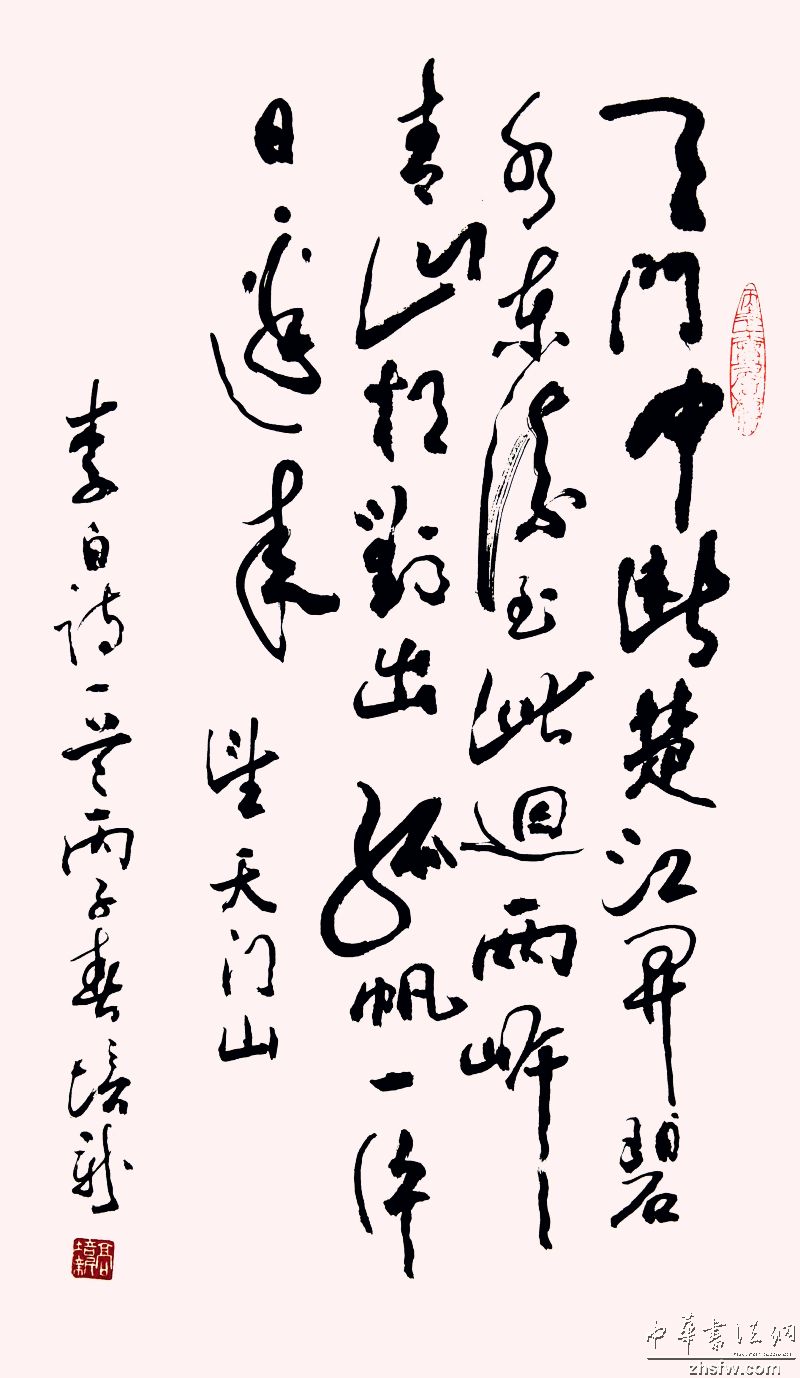 天門中斷楚江開碧
水東流至此迴兩岸
青山相對出孤帆一片
日邊來 望天门山
李白詩一首丙子春培新
高培新
中華書法網
zhsfw.com